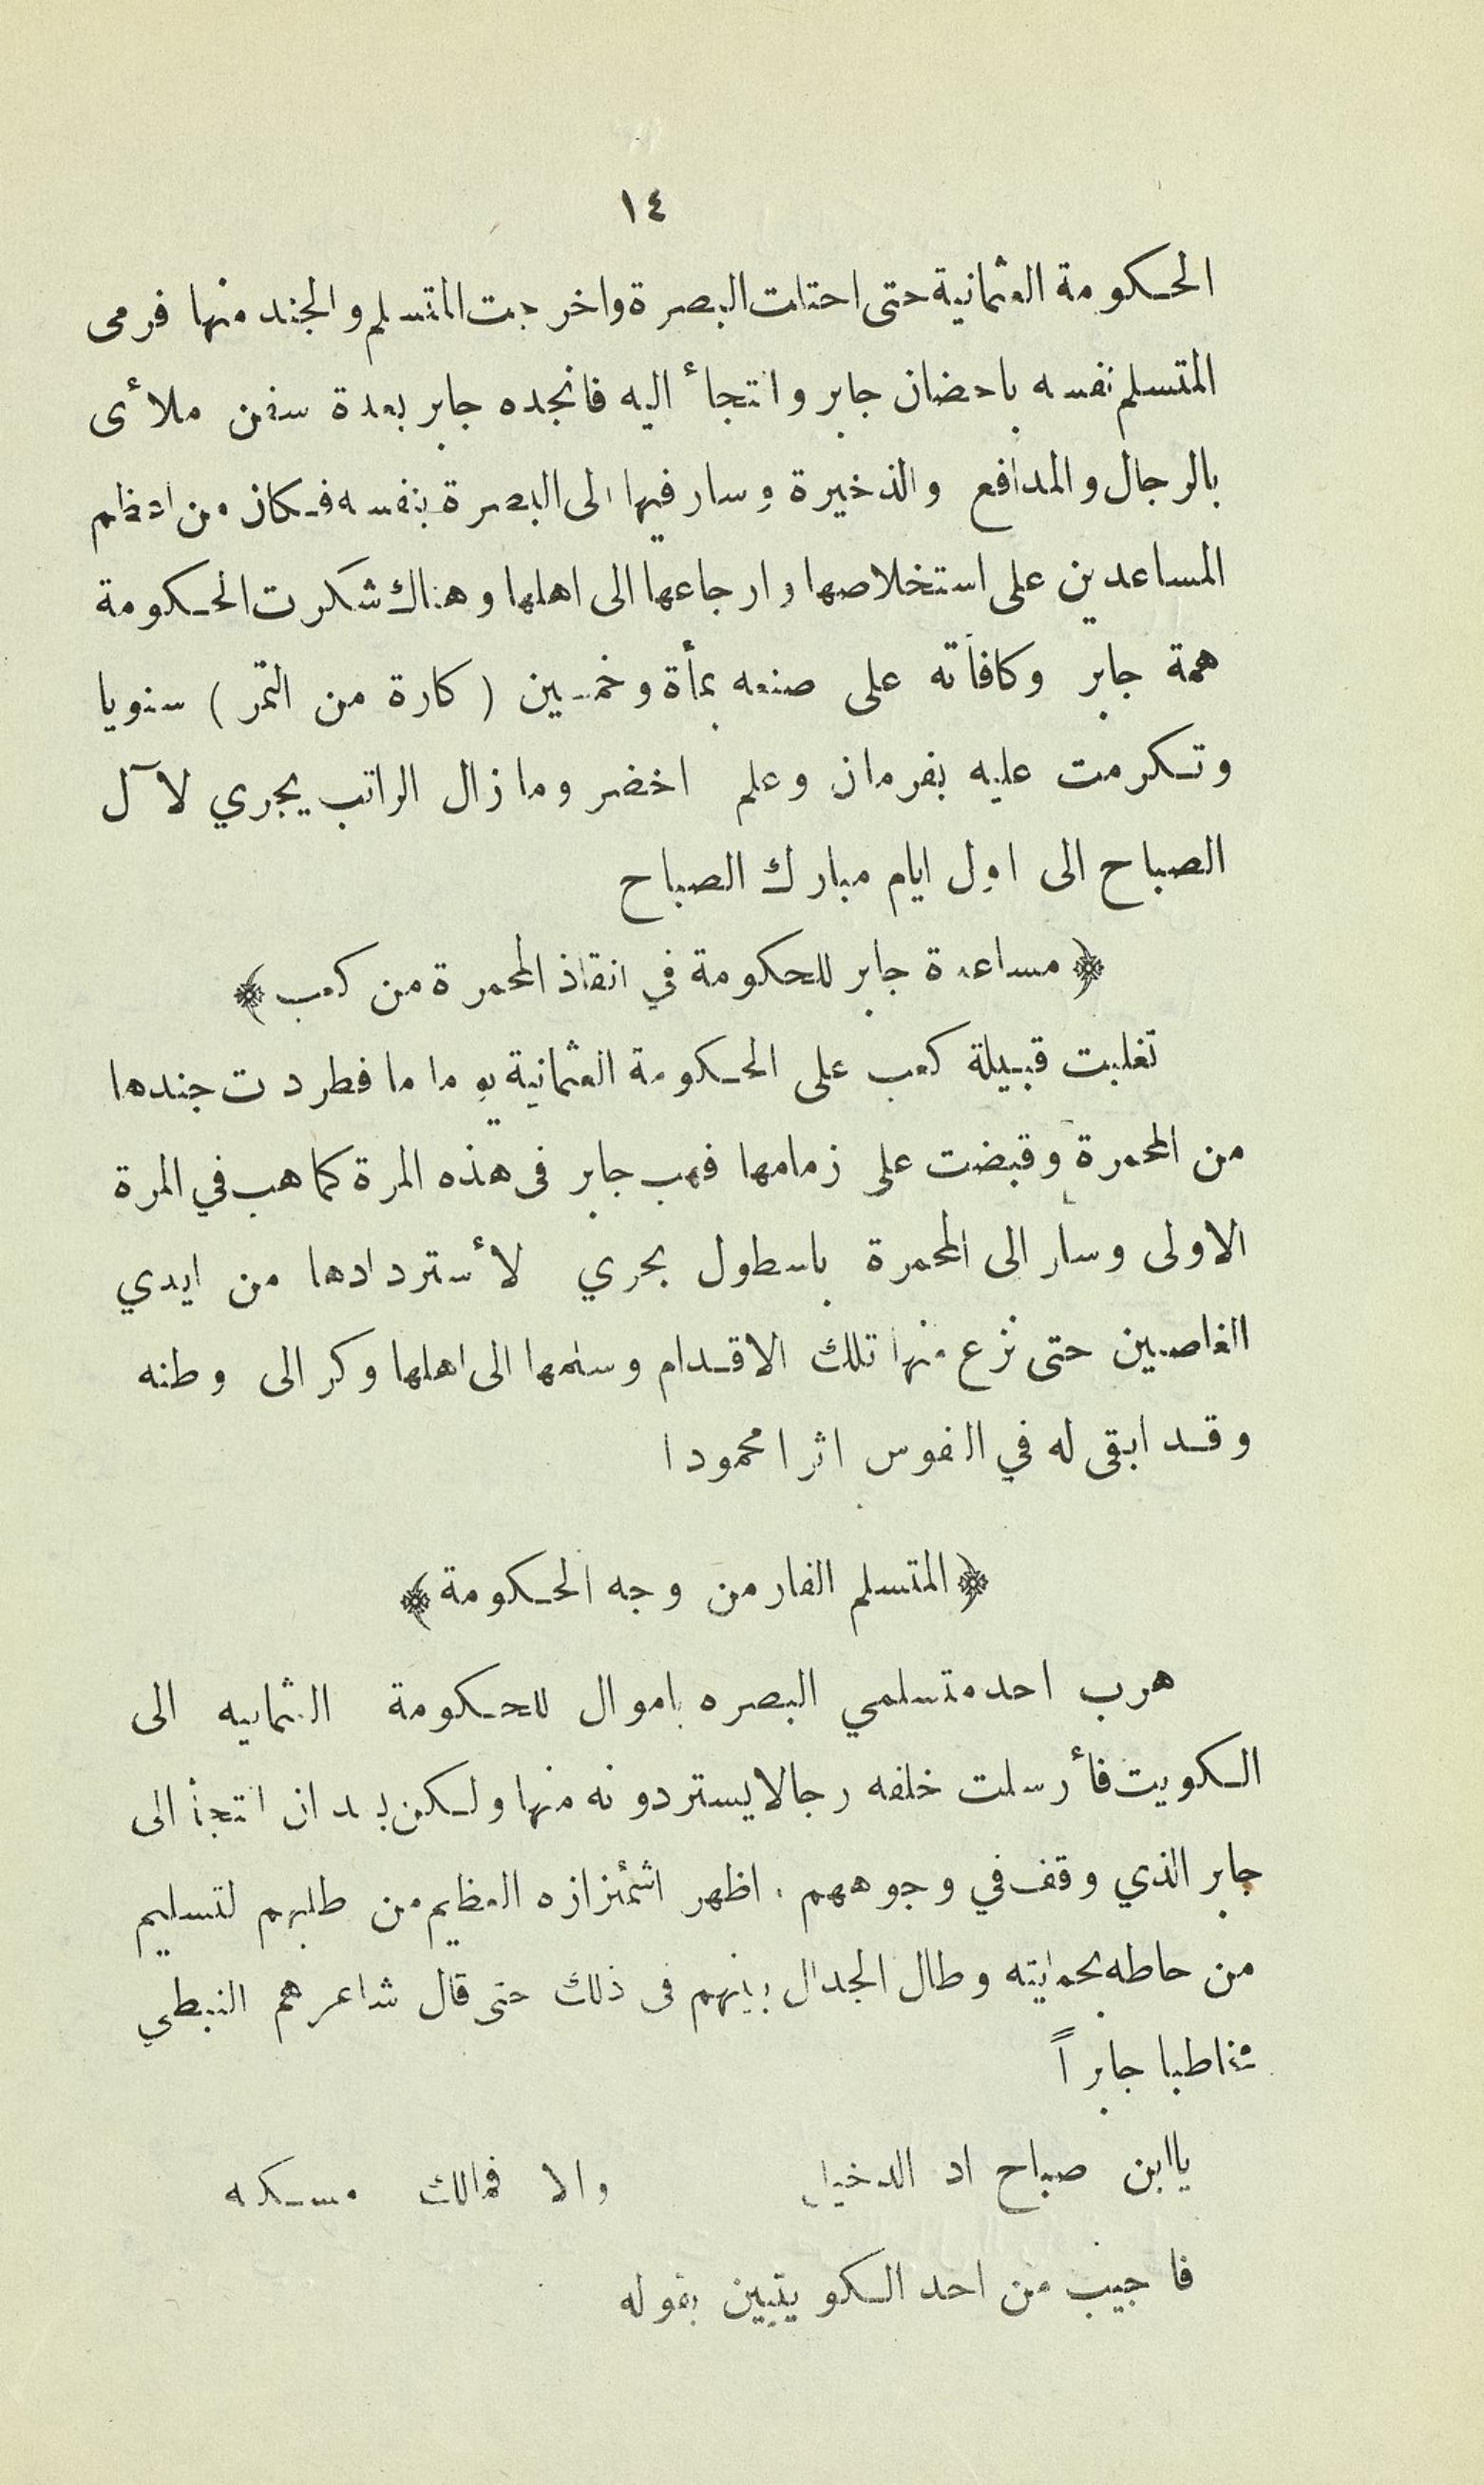 ١٤
الحكومة العثمانية حتى احتلت البصرة واخرجت المتسلم والجند منها فرمى
المتسلم نفسه باحضان جابر والتجأ اليه فانجده جابر بعدة سفن ملأى
بالرجال والمدافع والذخيرة وسار فيها الى البصرة بنفسه فكان من اعظم
المساعدين على استخلاصها وارجاعها الى اهلها وهناك شكرت الحكومة
همة جابر وكافأته على صنعه بمأة وخمسين ( كارة من التمر ) سنويا
وتكرمت عليه بفرمان وعلم اخضر وما زال الراتب يجري لآل
الصباح الى اول ايام مبارك الصباح
﴿ مساعدة جابر للحكومة في انقاذ المحمرة من كعب ﴾
تغلبت قبيلة كعب على الحكومة العثمانية يوما ما فطردت جندها
من المحمرة وقبضت على زمامها فهب جابر فى هذه المرة كما هب في المرة
الاولى وسار الى المحمرة باسطول بحري لأستردادها من ايدي
الغاصبين حتى نزع منها تلك الاقدام وسلمها الى اهلها وكر الى وطنه
وقد ابقى له في النفوس اثرا محمودا
﴿ المتسلم الفار من وجه الحكومة ﴾
هرب احد متسلمي البصره باموال للحكومة العثمانيه الى
الكويت فأرسلت خلفه رجالا يستردونه منها ولكن بعد ان التجأ الى
جابر الذي وقف في وجوههم . اظهر اشمئزازه العظيم من طلبهم لتسليم
من حاطه بحمايته وطال الجدال بينهم فى ذلك حتى قال شاعرهم النبطي
مخاطبا جابراً
يا ابن صباح اد الدخيل والا فمالك مسكه
فاجيب من احد الكويتيين بقوله